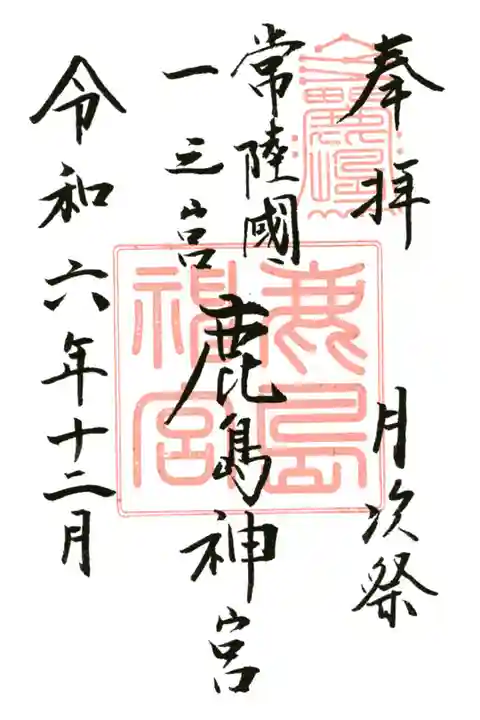 奉拝 月次祭
常陸國
一之宮 鹿島神宮
令和六年十二月
鹿島
神宮